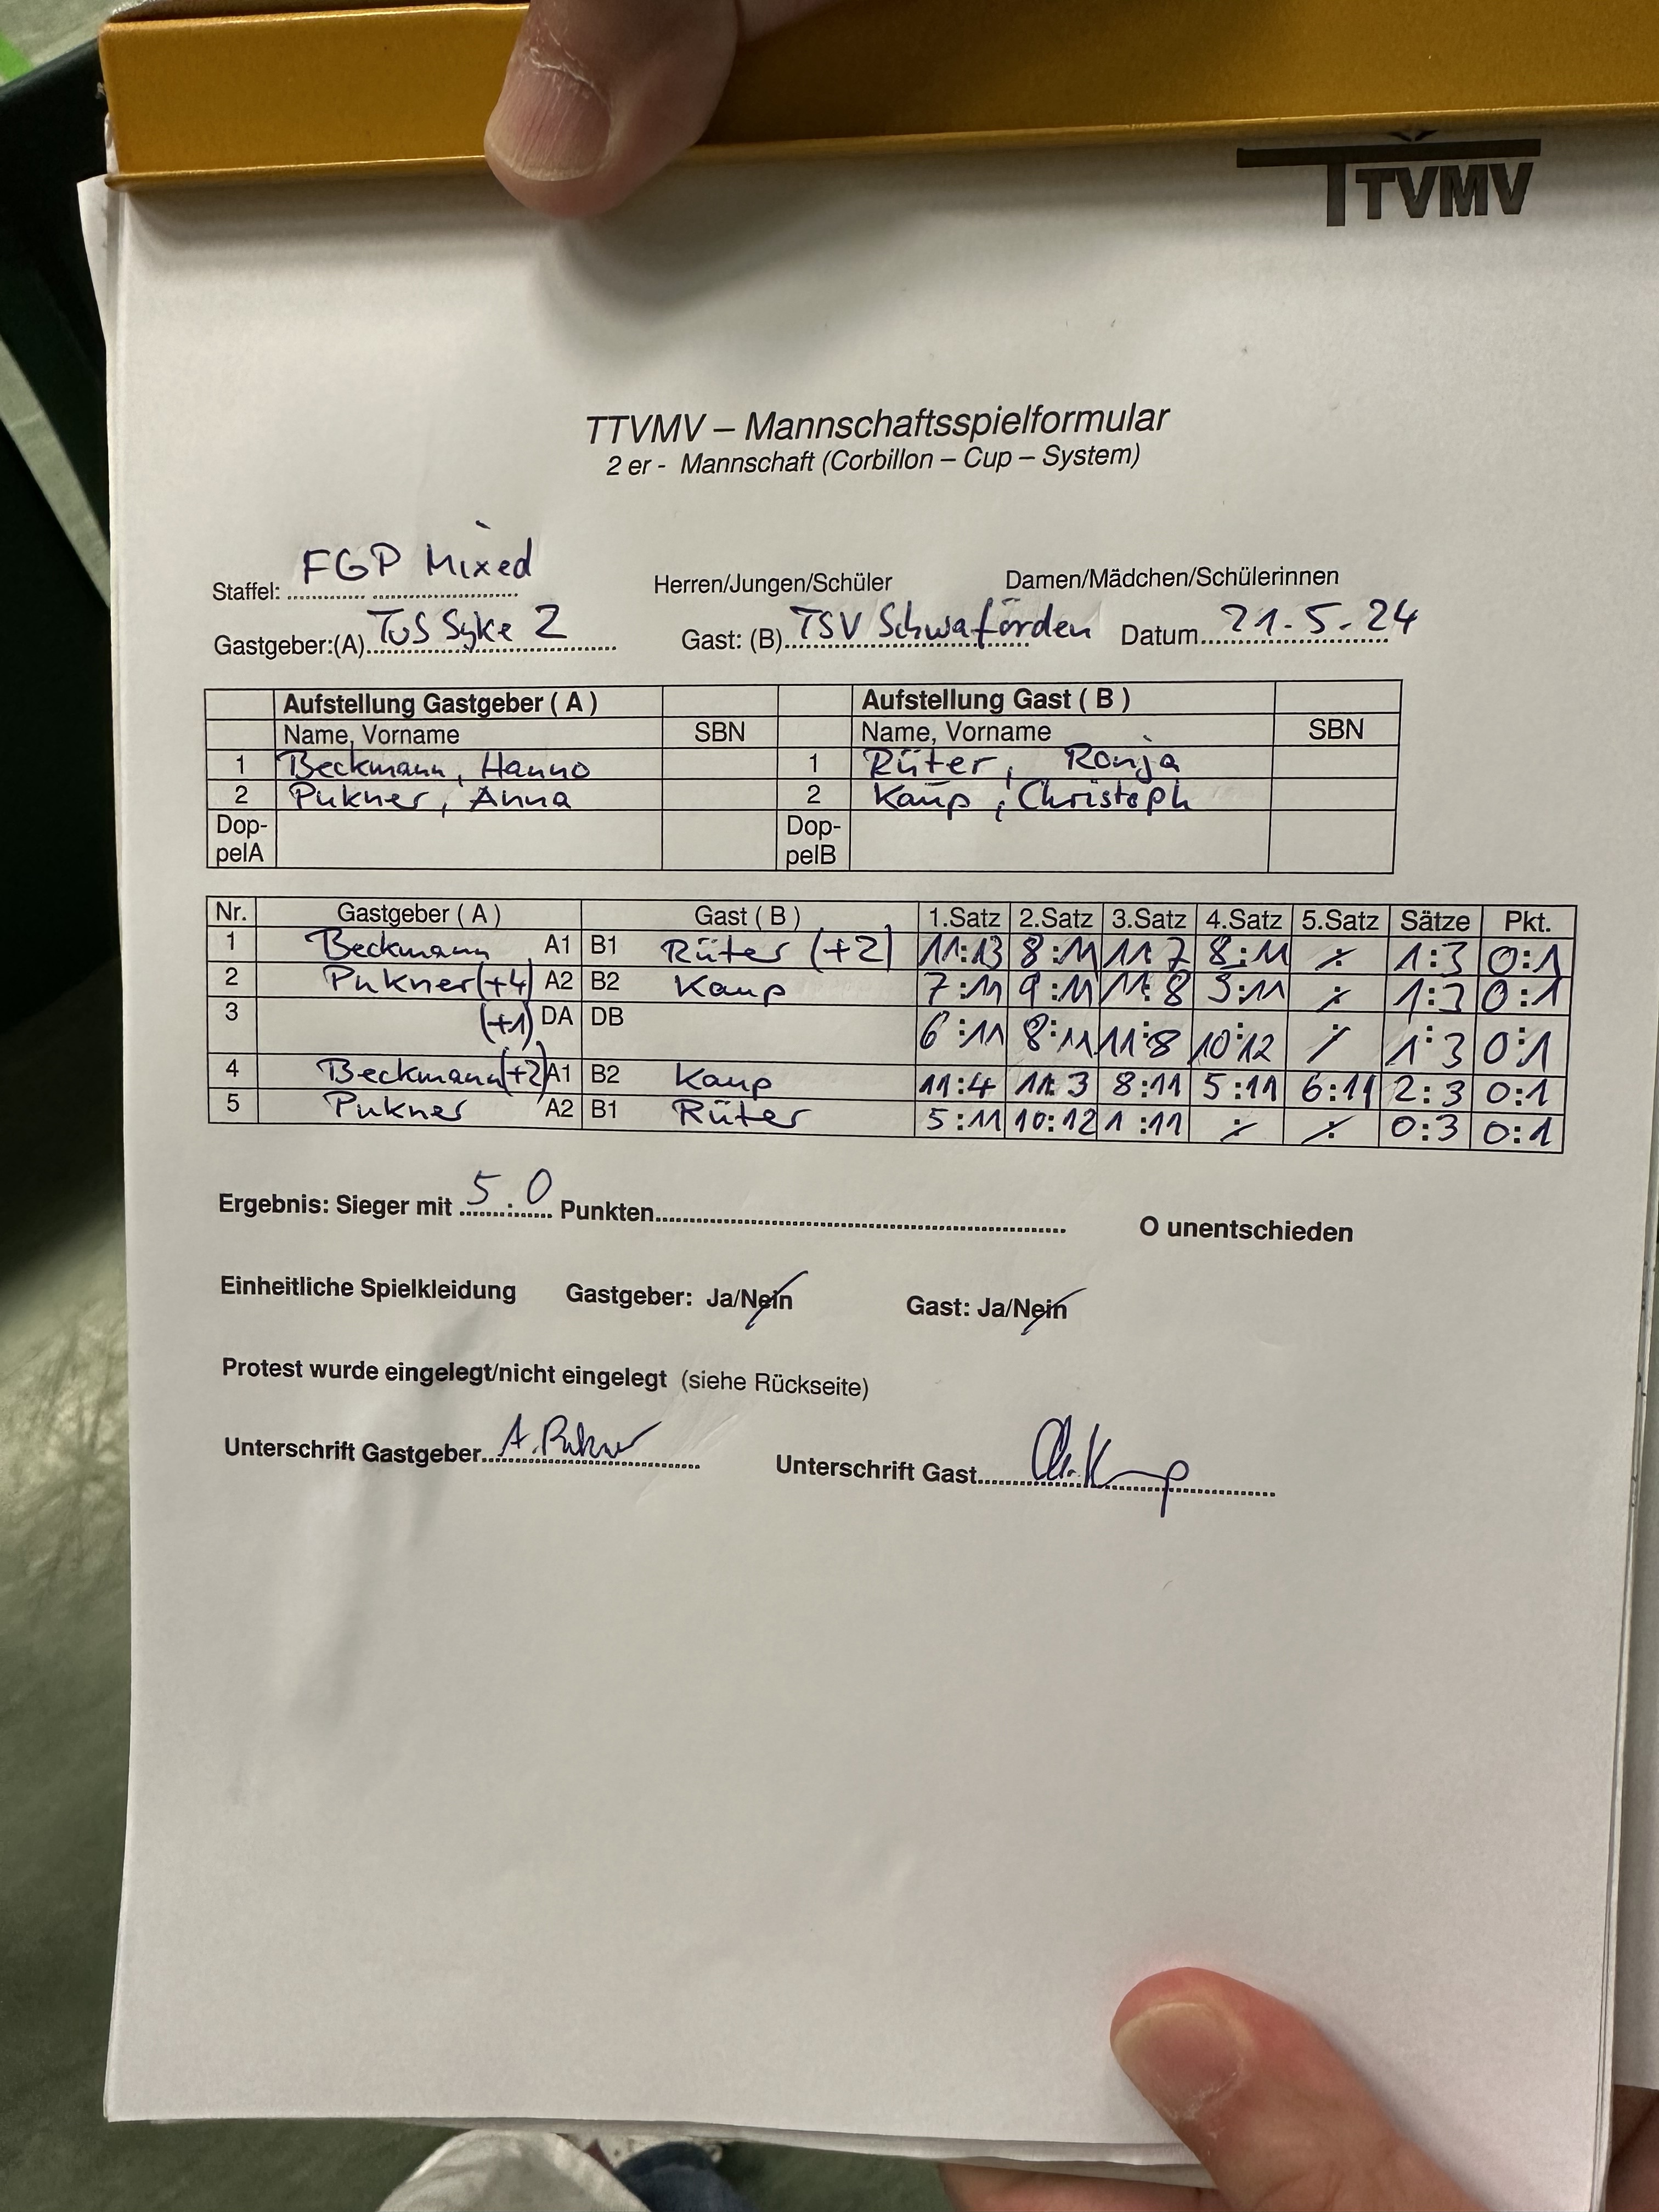 TTVMV
TTVMV – Mannschaftsspielformular
2 er - Mannschaft (Corbillon – Cup – System)
Staffel: FGP Mixed Herren/Jungen/Schüler Damen/Mädchen/Schülerinnen
Gastgeber:(A) TuS Syke 2 Gast: (B) TSV Schwaförden Datum 21.5.24
Aufstellung Gastgeber ( A ) Aufstellung Gast ( B )
Name, Vorname SBN Name, Vorname SBN
1 Beckmann, Hanno 1 Rüter, Ronja
2 Pukner, Anna 2 Kaup, Christoph
Dop- Dop-
pelA pelB
Nr. Gastgeber ( A ) Gast ( B ) 1.Satz 2.Satz 3.Satz 4.Satz 5.Satz Sätze Pkt.
1 Beckmann A1 B1 Rüter (+2) 11:13 8:11 11:7 8:11 : 1:3 0:1
2 Pukner (+4) A2 B2 Kaup 7:11 9:11 11:8 3:11 : 1:3 0:1
3 (+1) DA DB 6:11 8:11 11:8 10:12 : 1:3 0:1
4 Beckmann (+2) A1 B2 Kaup 11:4 11:3 8:11 5:11 6:11 2:3 0:1
5 Pukner A2 B1 Rüter 5:11 10:12 1:11 : : 0:3 0:1
Ergebnis: Sieger mit 5:0 Punkten O unentschieden
Einheitliche Spielkleidung Gastgeber: Ja/Nein Gast: Ja/Nein
Protest wurde eingelegt/nicht eingelegt (siehe Rückseite)
Unterschrift Gastgeber A. Pukner Unterschrift Gast Ch. Kaup